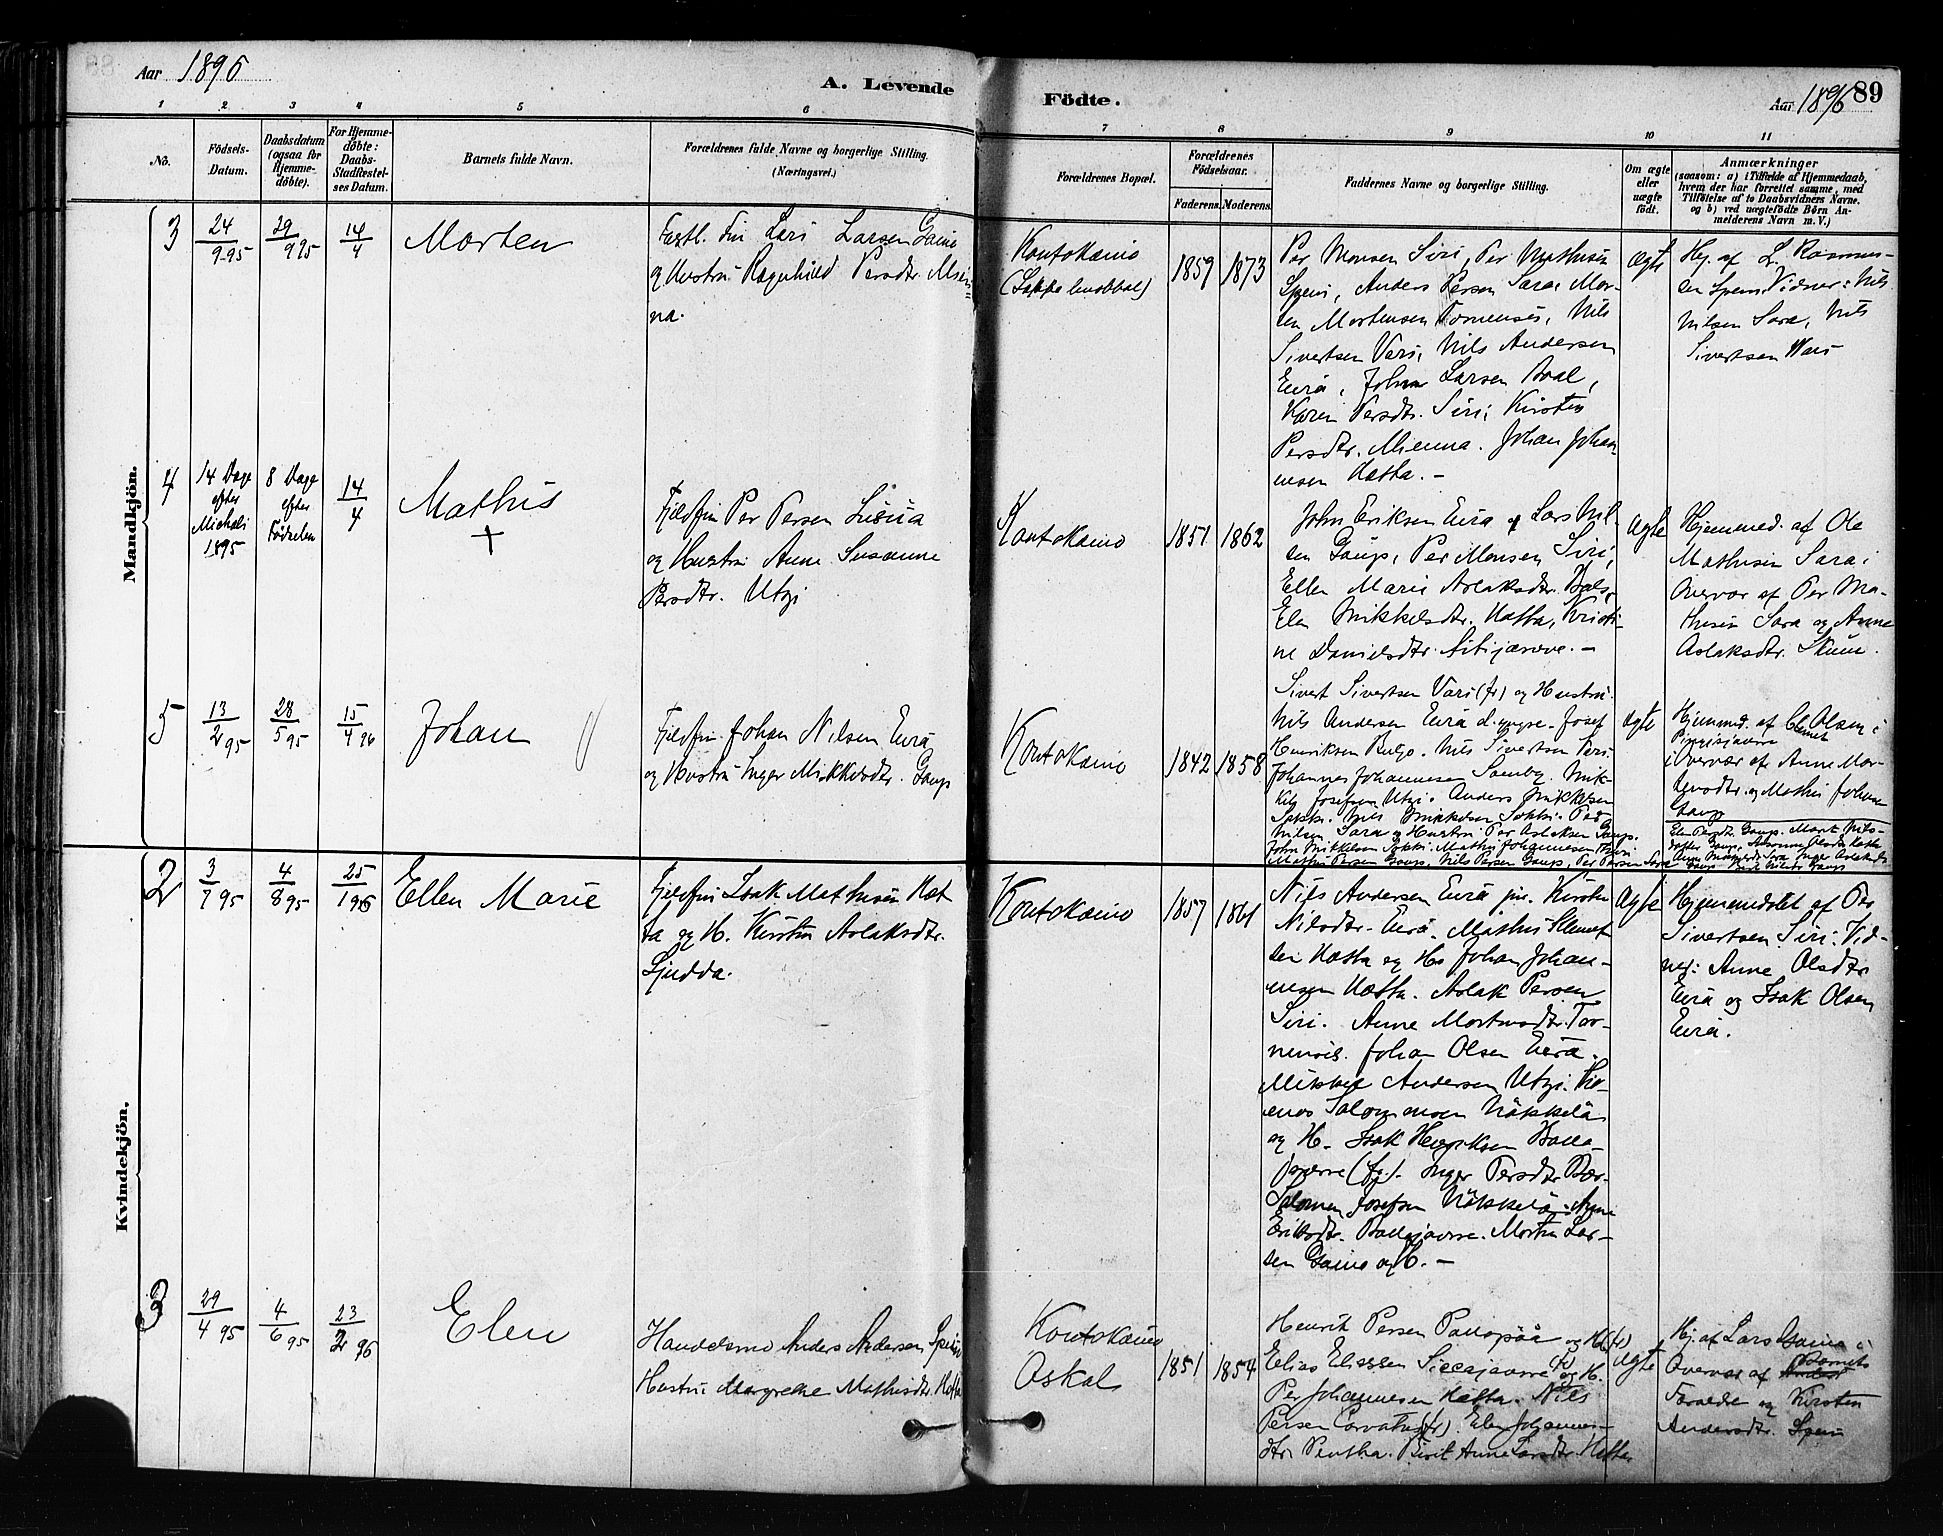 Aar 1896
A. Levende
Födte.
Aar 1896
89
1 2 3 4 5 6 7 8 9 10 11
No.
Födsels-
Datum.
Daabsdatum
(ogsaa for
Hjemme-
döbte).
For Hjemme-
döbte:
Daabs-
Stadfæstel-
ses Datum.
Barnets fulde Navn.
Forældrenes fulde Navne og borgerlige Stilling.
(Næringsvei.)
Forældrenes Bopæl.
Forældrenes
Födselsaar.
Faderens.
Moderens.
Faddernes Navne og borgerlige Stilling.
Om ægte
eller
uægte
födt.
Anmærkninger
(saasom: a) i Tilfælde af Hjemmedaab,
hvem der har forrettet samme, med
Tilföielse af to Daabsvidners Navne.
og b) ved uægtefödte Börn An-
melderens Navn m. V.)
Mandkjön.
3
24/9 95
29/9 95
14/4
Morten
Lars Larsen Gaino
og Hustru Ragnhild Persdtr.
na.
Koutokæino
1859
1873
Per Monsen Siri, Per Mathisen
Spein, Anders Persen Sara, Mor-
ten Mortensen Tornensis, Nils
Sivertsen Vars, Nils Andersen
Eira, John Larsen Bval,
Karen Persdtr. Siri, Kirsten
Persdtr. Mienna. Johan Johan
nsen Hætta. –
Ægte
Hj. af L. Rasmus-
sen Spein. Vidner: Nils
Nilsen Sara, Nils
Sivertsen Wars
4
14 Dage
efter
Michali
1895
8 Dage
efter
Födselen
14/4
Mathis
+
Fjeldfin Per Persen
og Hustru Anne Susanne
Persdtr. Utzi
Koutokæino
1851
1862
John Eriksen Eira og Lars Nil-
sen Gaup, Per Monsen Siri,
Ellen Marie Aslaksdtr. Bals,
Elen Mikkelsdtr. Hætta, Kristi-
ne Danielsdtr.
Ægte
Hjemmed. af Ole
Mathisen Sara i
Overvær af Per Ma-
thisen Sara og Anne
Aslaksdtr. Skum.
5
13/2 95
28/5 95
15/4 96
Johan
Fjeldfin Johan Nilsen Eira
og Hustru Inger Mikkelsdtr. Gaup
Koutokæino
1842
1858
Sivert Sivertsen Vars (fr) og Hustru.
Nils Andersen Eira d. yngre. Josef
Henriksen Nils Sivertsen
Johannes Johannesen Somby. Mik-
kel Josefsen Utzi. Anders Mikkelsen
Nils Mikkelsen Per
Nilsen Sara og Hustru Per Aslaksen Gaup.
John Mikkelsen Mathis Johannesen
Mathis Persen Gaup, Nils Persen Gaup, Per Persen Sara
Ægte
Hjemmed. af Clemet Olsen i
Overvær af Anne Mor-
tensdtr. og Mathis Johan
Gaup
Elen Persdtr. Gaup. Marit Nils-
datter Gaup,
Kvindekjön.
2
3/7 95
4/8 95
25/1 96
Ellen Marie
Fjeldfin Isak Mathisen Hæt
ta og H. Kirsten Aslaksdtr.
Ljudda.
Koutokæino
1857
1861
Nils Andersen Eira jn. Kirsten
Nilsdtr. Eira. Mathis Klemet
sen Hætta og H. Johan Johan-
nesen Hætta. Aslak Persen
Siri. Anne Mortensdtr. Tor-
nensis. Johan Olsen Eira.
Mikkel Andersen Utzi.
Salomonsen Näkkelä
og H. Isak Henriksen
(fj). Inger Persdtr. Bær.
Salomon Josefsen Näkkelä. Anne
Eriksdtr. Morten Lar-
sen Gaino og H. –
Ægte
Hjemmedöbt af Per
Sivertsen Siri. Vid-
ner: Anne Olsdtr.
Eira og Isak Olsen
Eira.
3
29/4 95
4/6 95
23/2 96
Elen
Handelsmd Anders Andersen Spein
Hustru Margrethe Mathisdtr. Hætta
Koutokæino
Askal
1851
1854
Henrik Persen og H. (fr)
Elias Eliassen Siccajavre og H.
Per Johannesen Hætta. Nils
Persen (fr). Elen Johannes-
dtr. Pentha. Berit Anne Larsdtr. Hætta
Ægte
Hj. af Lars Gaino i
Overvær af Barnets
Forældre og Kirsten
Andersdtr. Spein